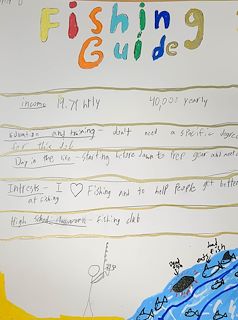 Fishing
Guide
income 19.71 hrly 40,000 yearly
Education and training - don't need a specific degree
for this job
Day in the life - starting before dawn to prep gear and meet
Intrests - I ♡ Fishing and to help People get better
at fishing
High School classwork - fishing club
good
fish
bad
fish